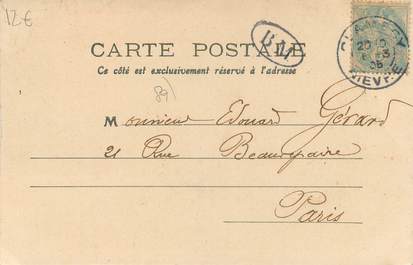 12€
B.M
CARTE POSTALE
Ce côté est exclusivement réservé à l'adresse
89
Monsieur Edouard Gérard
21 Rue Beaurepaire
Paris